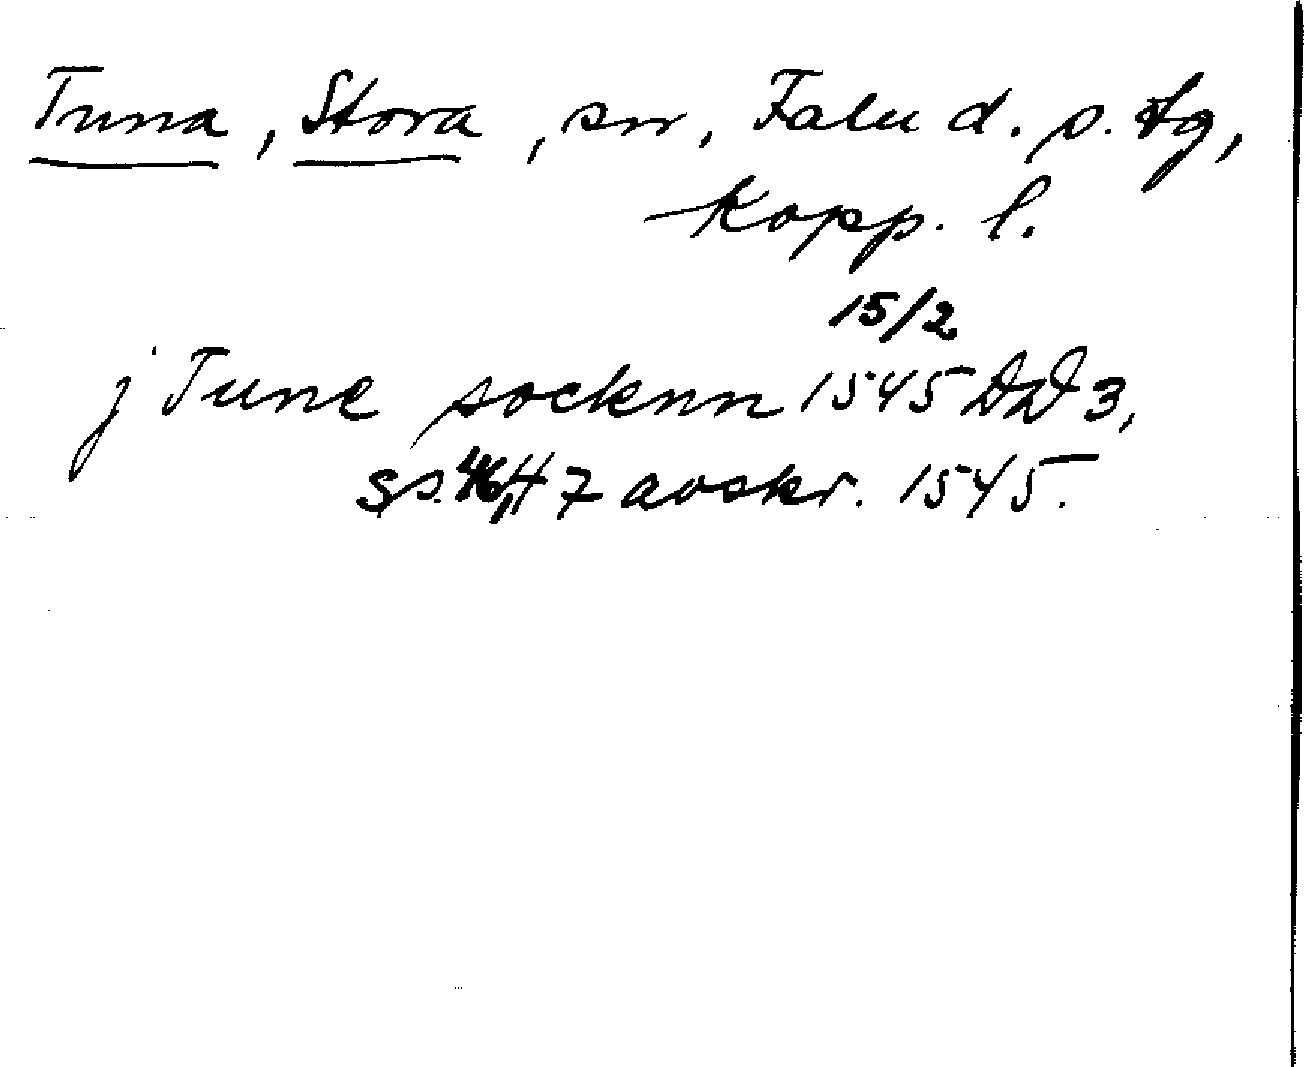 Tuna, Stora, sn, Falu d. s. tg,
Kopp. l.
15/2
j Tune socknn 1545 DD 3,
ss. 46, 47 avskr. 1545.